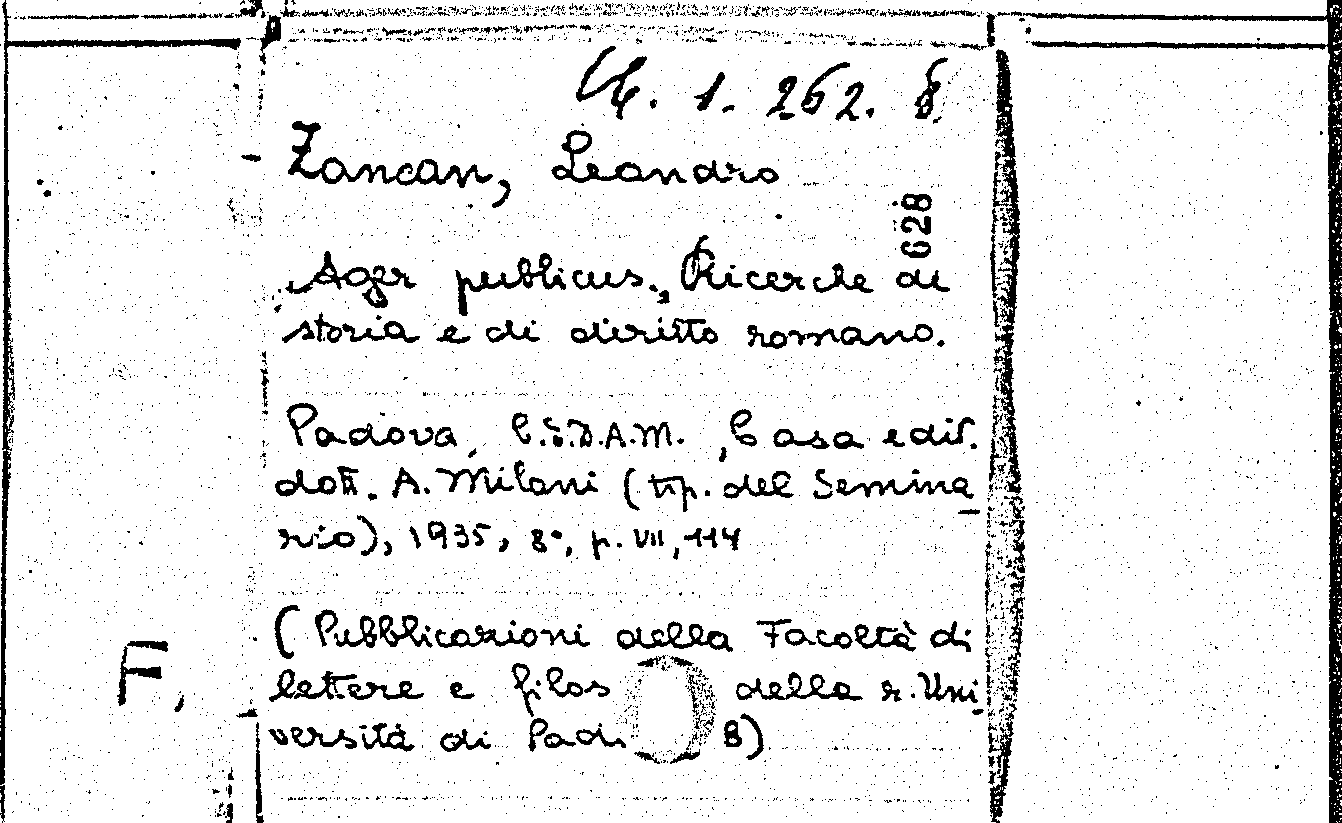 1. 262. 8
Zancan, Leandro
628
Ager publicus., Ricerche di
storia e di diritto romano.
Padova, C.E.D.A.M., Casa edit.
dott. A. Milani (tip. del Semina
rio), 1935, 8°, p. VII, 114
(Pubblicazioni della Facoltà di
lettere e filos della r. Uni
F,
versità di Pado 8)